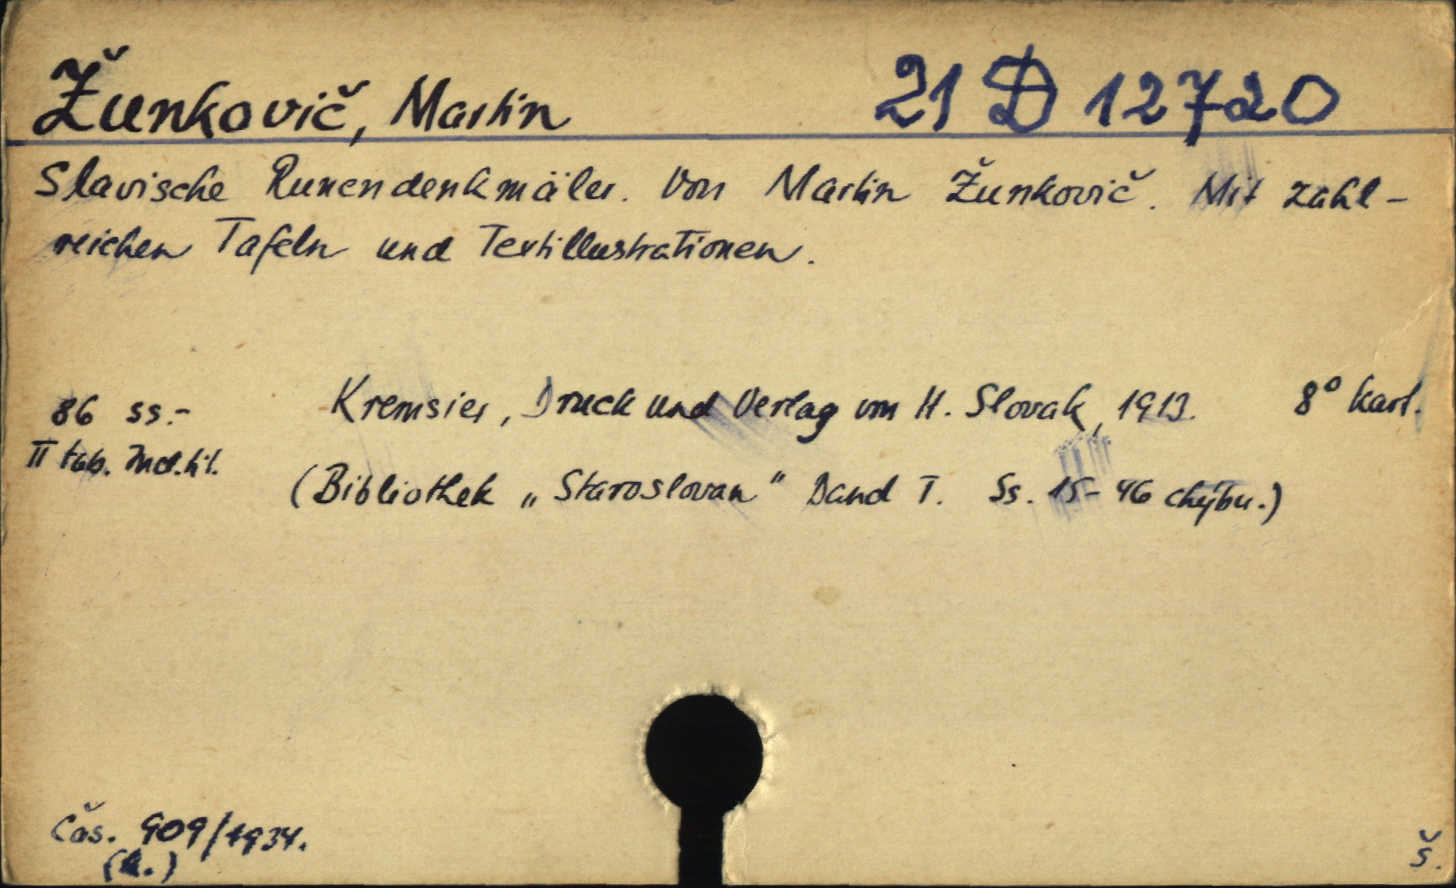 Žunkovič, Martin 21 D 12720
Slavische Runendenkmäler. Von Martin Žunkovič. Mit zahl-
reichen Tafeln und Textillustrationen.
86 ss.- Kremsier, Druck und Verlag von H. Slovak, 1913. 8° kart.
II tab. Ind. tit.
(Bibliothek „Staroslovan" Band I. Ss. 15-46 chýbu.)
Čás. 909/1934.
(k.) š.